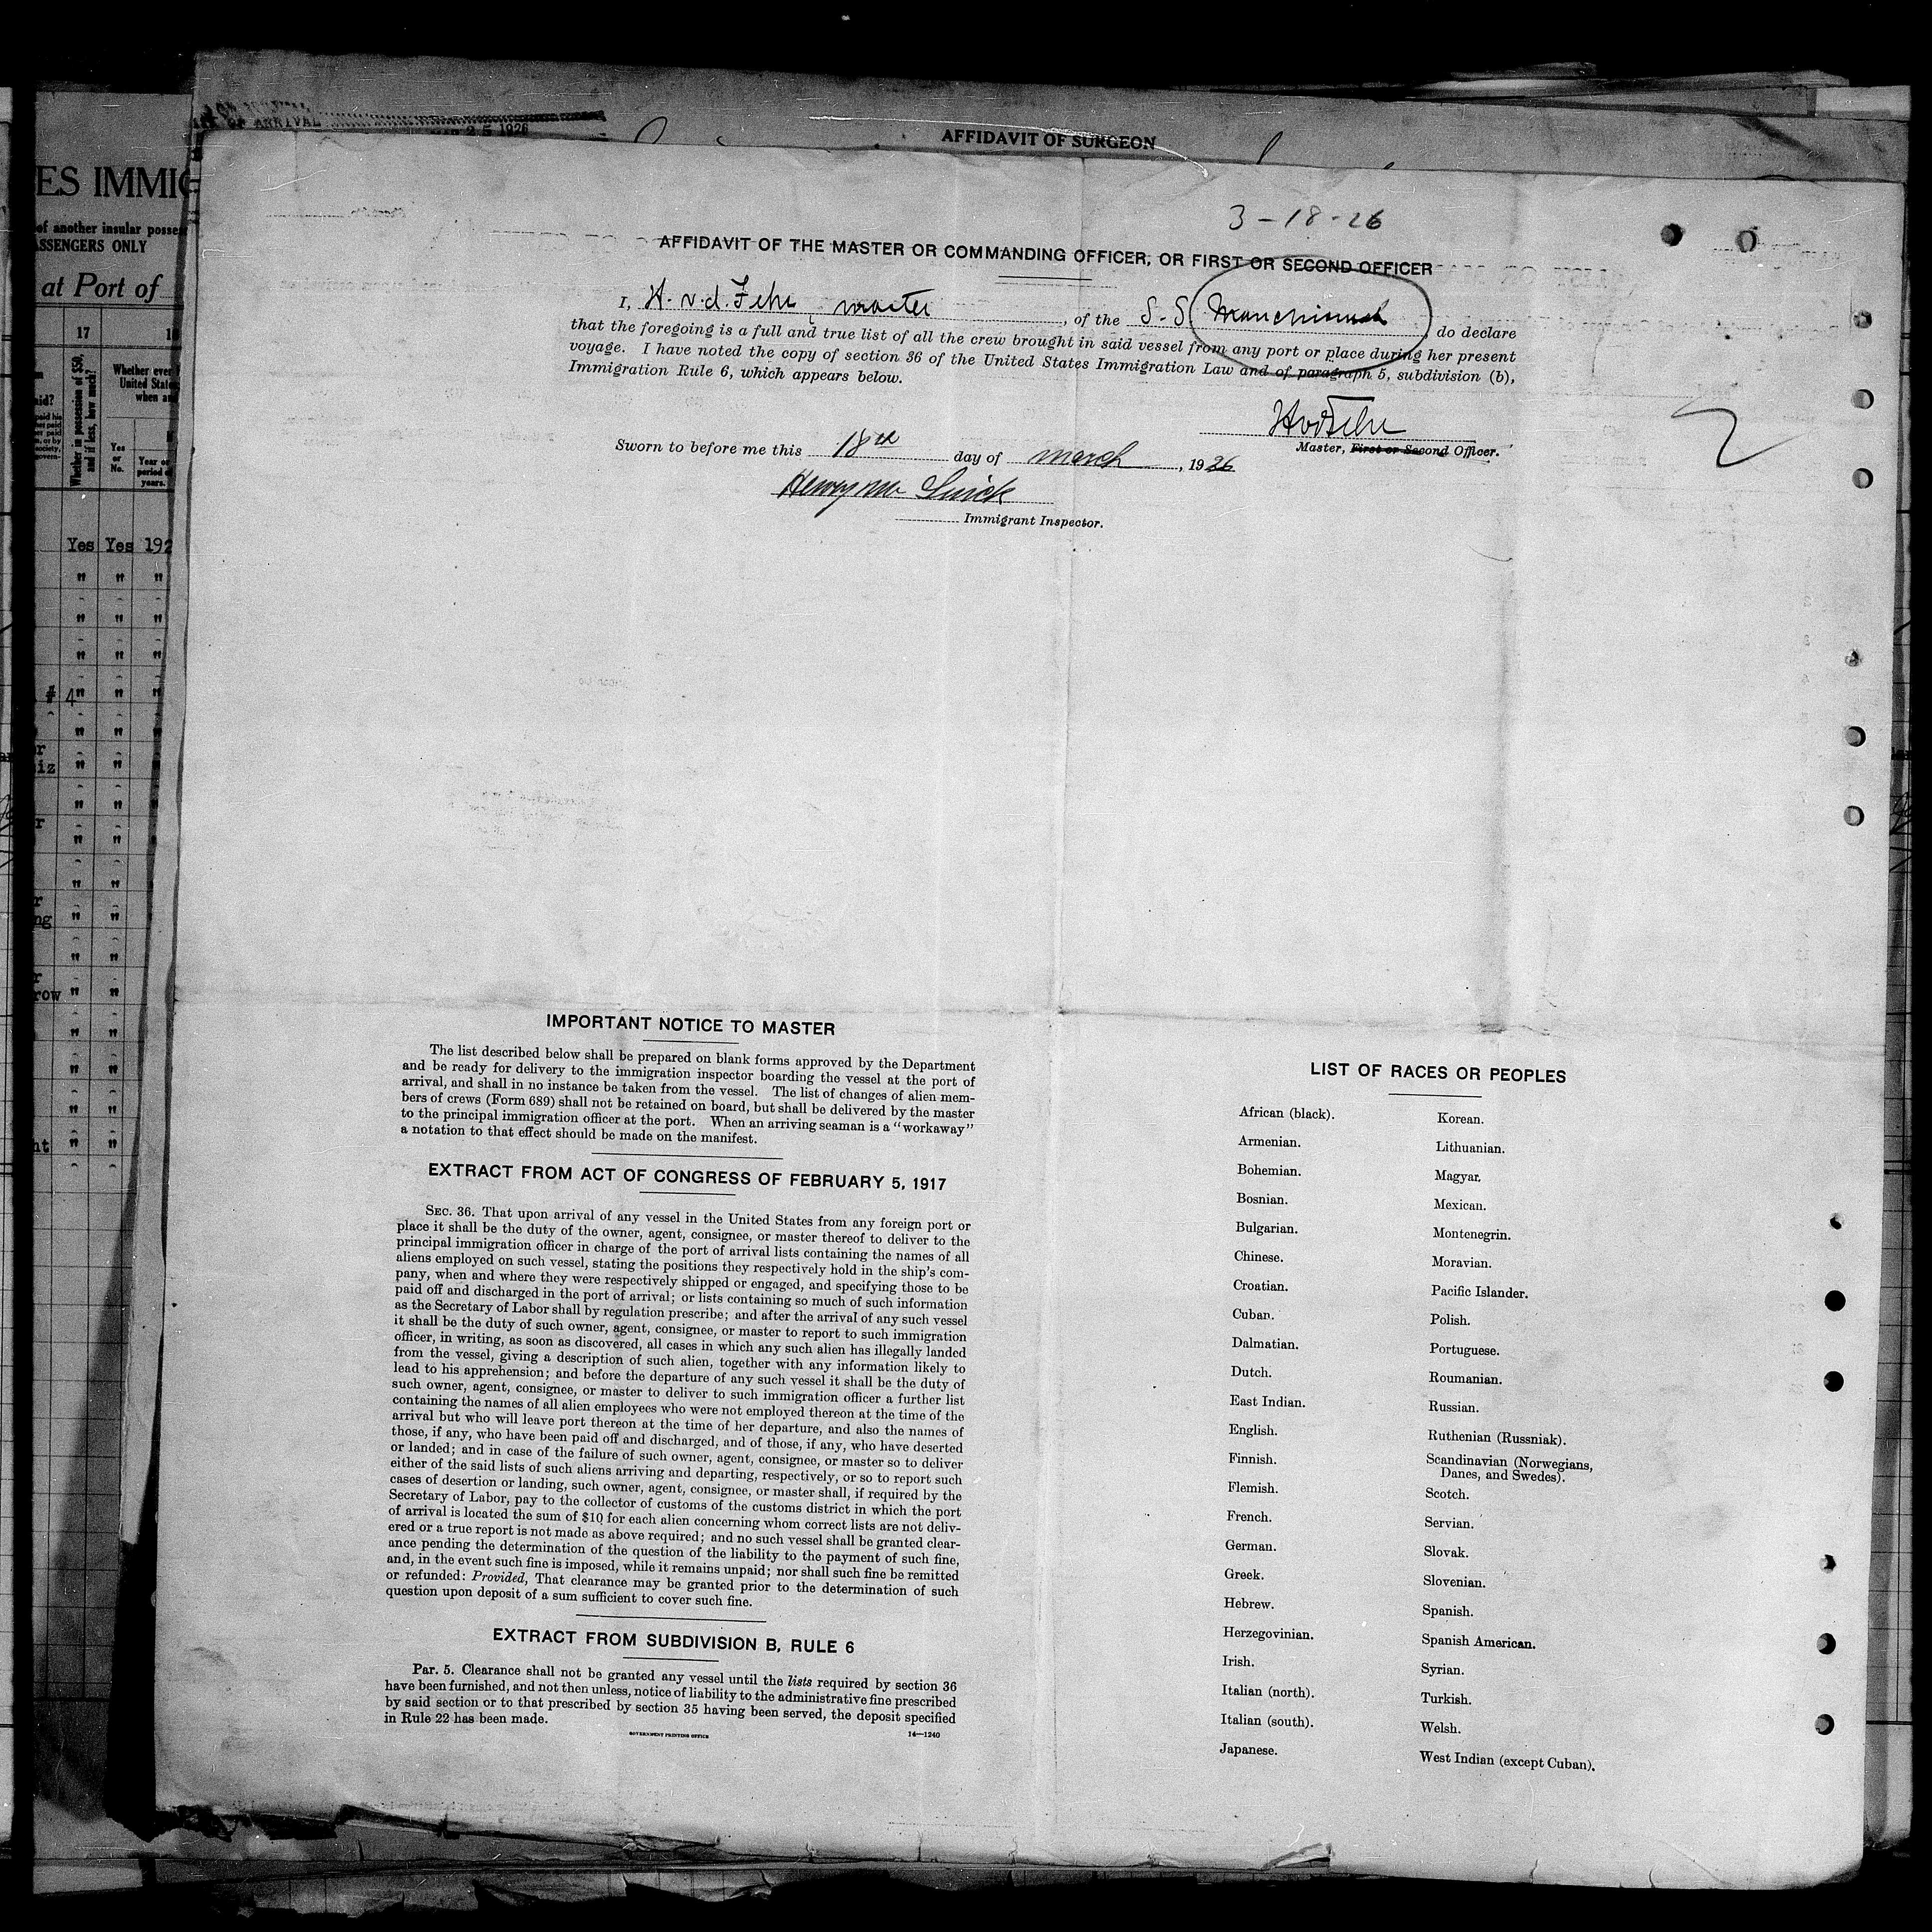 OF ARRIVAL
MAR 25 1926
AFFIDAVIT OF SURGEON
ES IMMIG
of another insular posses
ASSENGERS ONLY
at Port of
17
Whether in possession of $50,
and if less, how much?
Whether ever
United States
when and
Yes
or
No.
Year or
period of
years.
Yes Yes 192
3-18-26
AFFIDAVIT OF THE MASTER OR COMMANDING OFFICER, OR FIRST OR SECOND OFFICER
I, H. v. d. Fehr, master, of the S-S , do declare
that the foregoing is a full and true list of all the crew brought in said vessel from any port or place during her present
voyage. I have noted the copy of section 36 of the United States Immigration Law and of paragraph 5, subdivision (b),
Immigration Rule 6, which appears below.
HvdFehr
Master, First or Second Officer.
Sworn to before me this 18th day of march, 1926
Henry
Immigrant Inspector.
IMPORTANT NOTICE TO MASTER
The list described below shall be prepared on blank forms approved by the Department
and be ready for delivery to the immigration inspector boarding the vessel at the port of
arrival, and shall in no instance be taken from the vessel. The list of changes of alien mem-
bers of crews (Form 689) shall not be retained on board, but shall be delivered by the master
to the principal immigration officer at the port. When an arriving seaman is a "workaway"
a notation to that effect should be made on the manifest.
EXTRACT FROM ACT OF CONGRESS OF FEBRUARY 5, 1917
SEC. 36. That upon arrival of any vessel in the United States from any foreign port or
place it shall be the duty of the owner, agent, consignee, or master thereof to deliver to the
principal immigration officer in charge of the port of arrival lists containing the names of all
aliens employed on such vessel, stating the positions they respectively hold in the ship's com-
pany, when and where they were respectively shipped or engaged, and specifying those to be
paid off and discharged in the port of arrival; or lists containing so much of such information
as the Secretary of Labor shall by regulation prescribe; and after the arrival of any such vessel
it shall be the duty of such owner, agent, consignee, or master to report to such immigration
officer, in writing, as soon as discovered, all cases in which any such alien has illegally landed
from the vessel, giving a description of such alien, together with any information likely to
lead to his apprehension; and before the departure of any such vessel it shall be the duty of
such owner, agent, consignee, or master to deliver to such immigration officer a further list
containing the names of all alien employees who were not employed thereon at the time of the
arrival but who will leave port thereon at the time of her departure, and also the names of
those, if any, who have been paid off and discharged, and of those, if any, who have deserted
or landed; and in case of the failure of such owner, agent, consignee, or master so to deliver
either of the said lists of such aliens arriving and departing, respectively, or so to report such
cases of desertion or landing, such owner, agent, consignee, or master shall, if required by the
Secretary of Labor, pay to the collector of customs of the customs district in which the port
of arrival is located the sum of $10 for each alien concerning whom correct lists are not deliv-
ered or a true report is not made as above required; and no such vessel shall be granted clear-
ance pending the determination of the question of the liability to the payment of such fine,
and, in the event such fine is imposed, while it remains unpaid; nor shall such fine be remitted
or refunded: Provided, That clearance may be granted prior to the determination of such
question upon deposit of a sum sufficient to cover such fine.
EXTRACT FROM SUBDIVISION B, RULE 6
Par. 5. Clearance shall not be granted any vessel until the lists required by section 36
have been furnished, and not then unless, notice of liability to the administrative fine prescribed
by said section or to that prescribed by section 35 having been served, the deposit specified
in Rule 22 has been made.
GOVERNMENT PRINTING OFFICE 14—1240
LIST OF RACES OR PEOPLES
African (black).
Armenian.
Bohemian.
Bosnian.
Bulgarian.
Chinese.
Croatian.
Cuban.
Dalmatian.
Dutch.
East Indian.
English.
Finnish.
Flemish.
French.
German.
Greek.
Hebrew.
Herzegovinian.
Irish.
Italian (north).
Italian (south).
Japanese.
Korean.
Lithuanian.
Magyar.
Mexican.
Montenegrin.
Moravian.
Pacific Islander.
Polish.
Portuguese.
Roumanian.
Russian.
Ruthenian (Russniak).
Scandinavian (Norwegians,
Danes, and Swedes).
Scotch.
Servian.
Slovak.
Slovenian.
Spanish.
Spanish American.
Syrian.
Turkish.
Welsh.
West Indian (except Cuban).